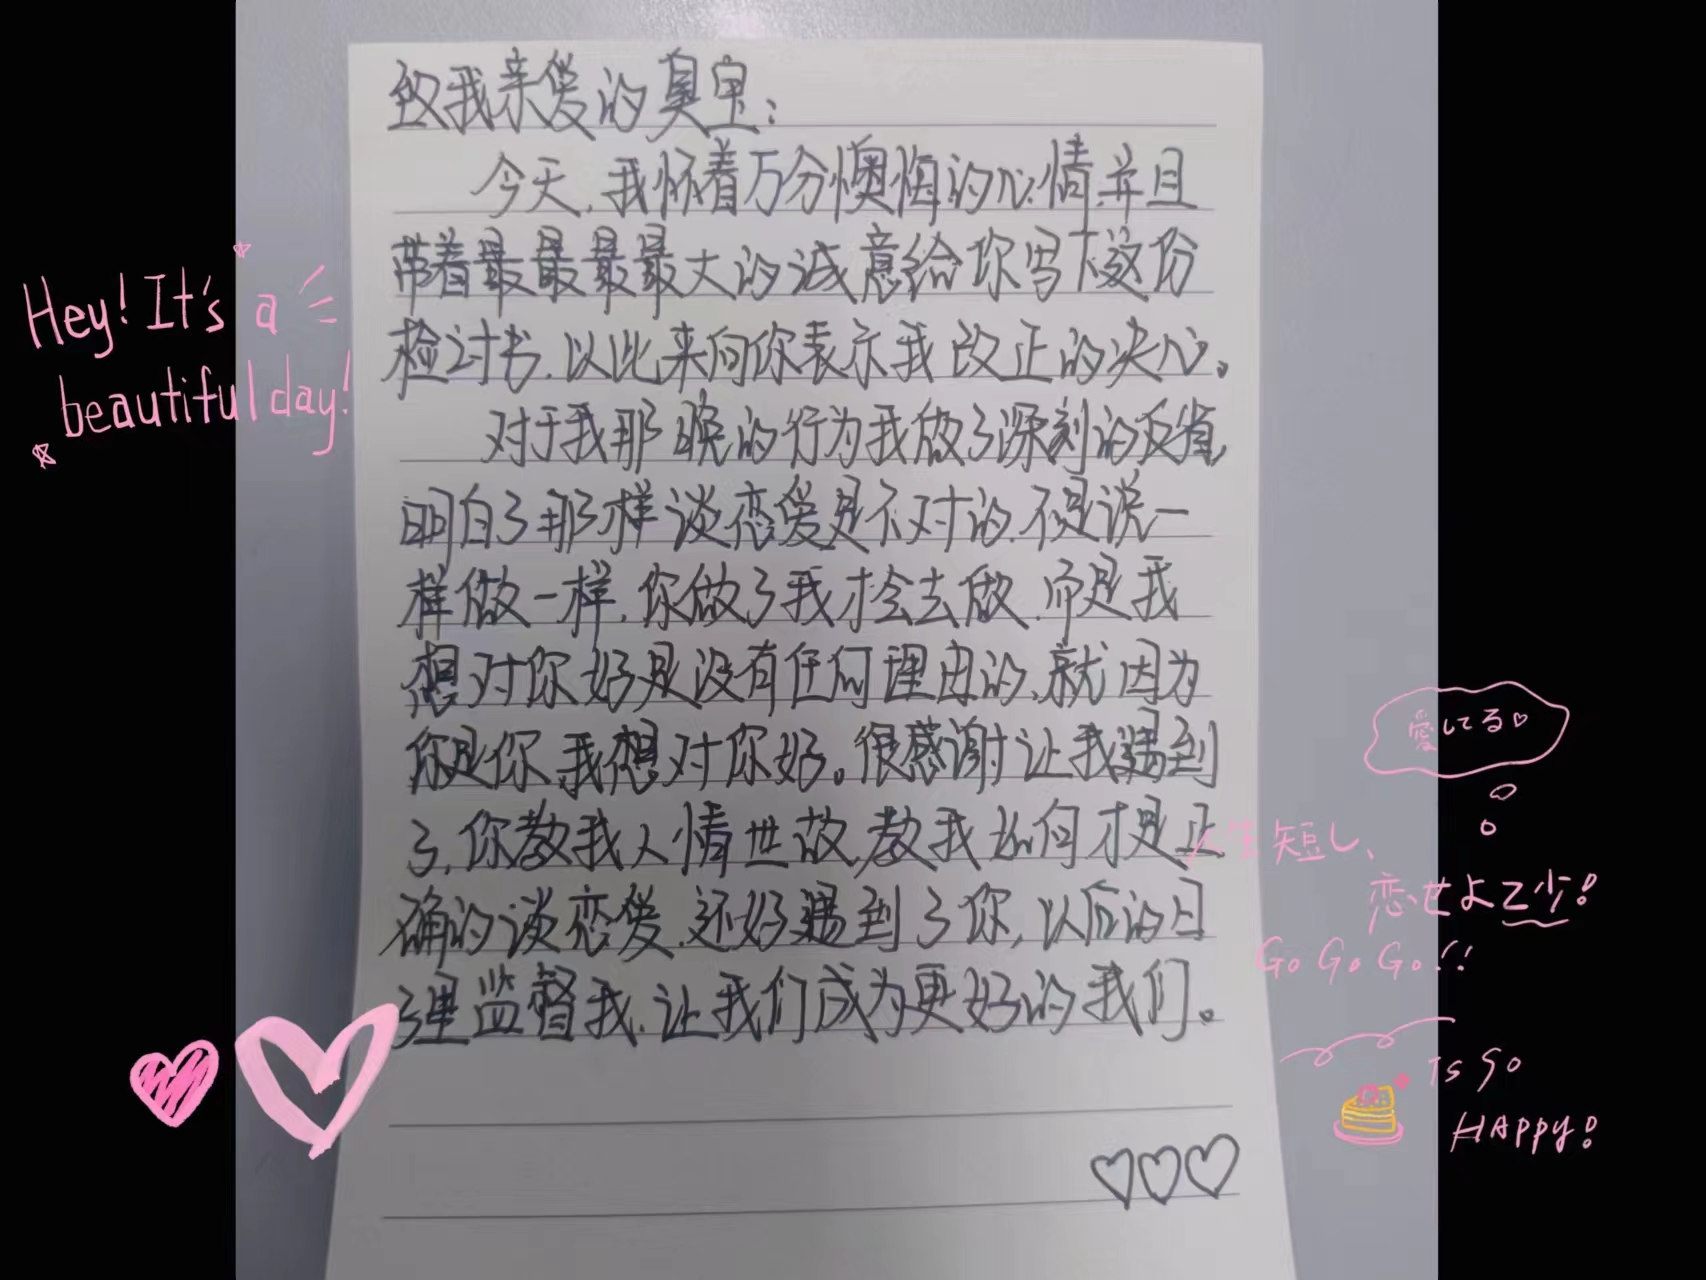 致我亲爱的臭宝：
今天，我怀着万分懊悔的心情并且
带着最最最最大的诚意给你写下这份
检讨书，以此来向你表示我改正的决心。
对于我那晚的行为我做了深刻的反省，
明白了那样谈恋爱是不对的，不是说一
样做一样，你做了我才会去做，而是我
想对你好是没有任何理由的，就因为
你是你，我想对你好。很感谢让我遇到
了，你教我人情世故，教我如何才是正
确的谈恋爱，还好遇到了你，以后的日
子里监督我，让我们成为更好的我们。
♡♡♡
Hey! It's a
beautiful day!
愛してる♡
人生短し、
恋せよ乙少!
Go Go Go!!
Is So
HAPPY!